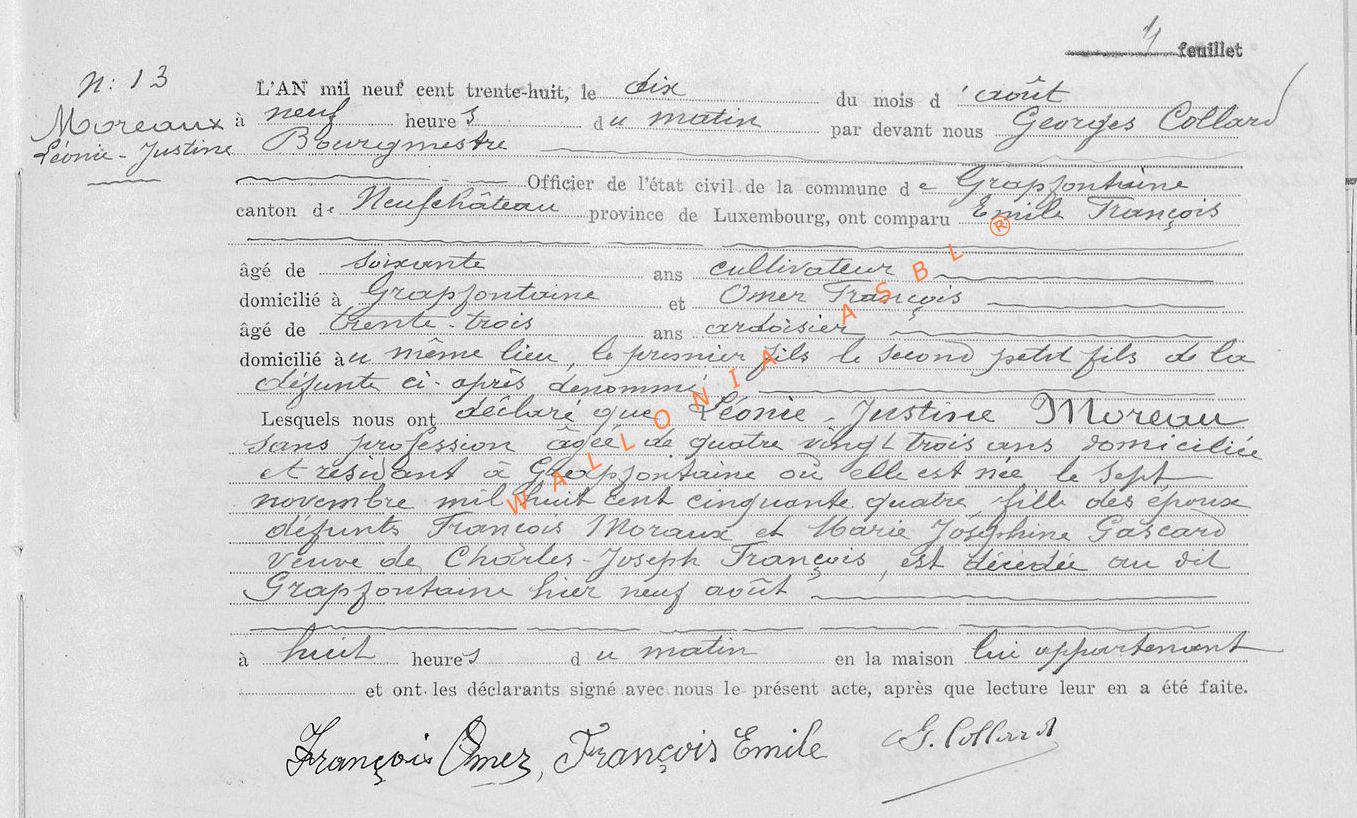 4 feuillet
N: 13
Moreaux
Léonie-Justine
L'AN mil neuf cent trente-huit, le dix du mois d'août
à neuf heures du matin par devant nous Georges Collard
Bourgmestre
Officier de l'état civil de la commune de Grapfontaine
canton de Neufchâteau province de Luxembourg, ont comparu Emile François
âgé de soixante ans cultivateur
domicilié à Grapfontaine et Omer François
âgé de trente-trois ans ardoisier
domicilié au même lieu, le premier fils le second petit fils de la
défunte ci-après dénommé
Lesquels nous ont déclaré que Léonie-Justine Moreau
sans profession âgée de quatre vingt trois ans domiciliée
et résidant à Grapfontaine où elle est née le sept
novembre mil huit cent cinquante quatre, fille des époux
défunts François Moraux et Marie Joséphine Gascard
veuve de Charles-Joseph François, est décédée au dit
Grapfontaine hier neuf août
à huit heures du matin en la maison lui appartenant
et ont les déclarants signé avec nous le présent acte, après que lecture leur en a été faite.
François Omer, François Emile G. Collard
WALLONIA ASBL ®